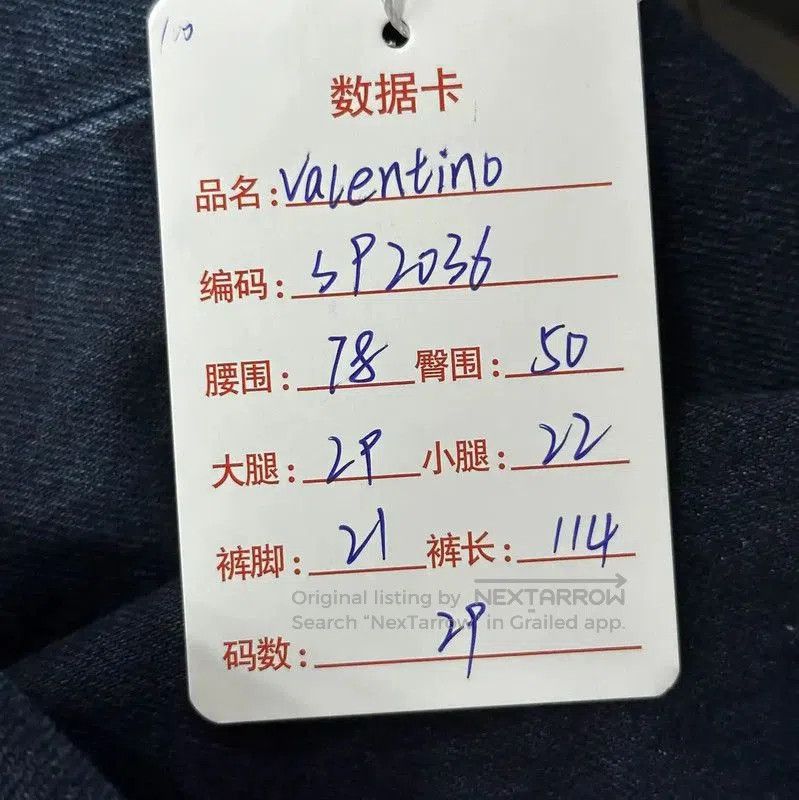 100
数据卡
品名: Valentino
编码: SP2036
腰围: 78 臀围: 50
大腿: 29 小腿: 22
裤脚: 21 裤长: 114
Original listing by NEXTARROW
Search “NexTarrow” in Grailed app.
码数: 29